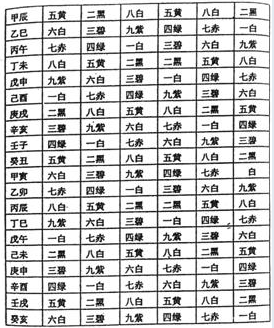 甲辰 五黄 二黑 八白 五黄 八白 二黑
乙巳 六白 三碧 九紫 四绿 七赤 一白
丙午 七赤 四绿 一白 三碧 六白 九紫
丁未 八白 五黄 二黑 二黑 五黄 八白
戊申 九紫 六白 三碧 一白 四绿 七赤
己酉 一白 七赤 四绿 九紫 三碧 六白
庚戌 二黑 八白 五黄 八白 二黑 五黄
辛亥 三碧 九紫 六白 七赤 一白 四绿
壬子 四绿 一白 七赤 六白 九紫 三碧
癸丑 五黄 二黑 八白 五黄 八白 二黑
甲寅 六白 三碧 九紫 四绿 七赤 白
乙卯 七赤 四绿 一白 三碧 六白 九紫
丙辰 八白 五黄 二黑 二黑 五黄 八白
丁巳 九紫 六白 三碧 一白 四绿 七赤
戊午 一白 七赤 四绿 九紫 三碧 六白
己未 二黑 八白 五黄 八白 二黑 五黄
庚申 三碧 九紫 六白 七赤 一白 四绿
辛酉 四绿 一白 七赤 六白 九紫 三碧
壬戌 五黄 二黑 八白 五黄 八白 二黑
癸亥 六白 三碧 九紫 四绿 七赤 一白